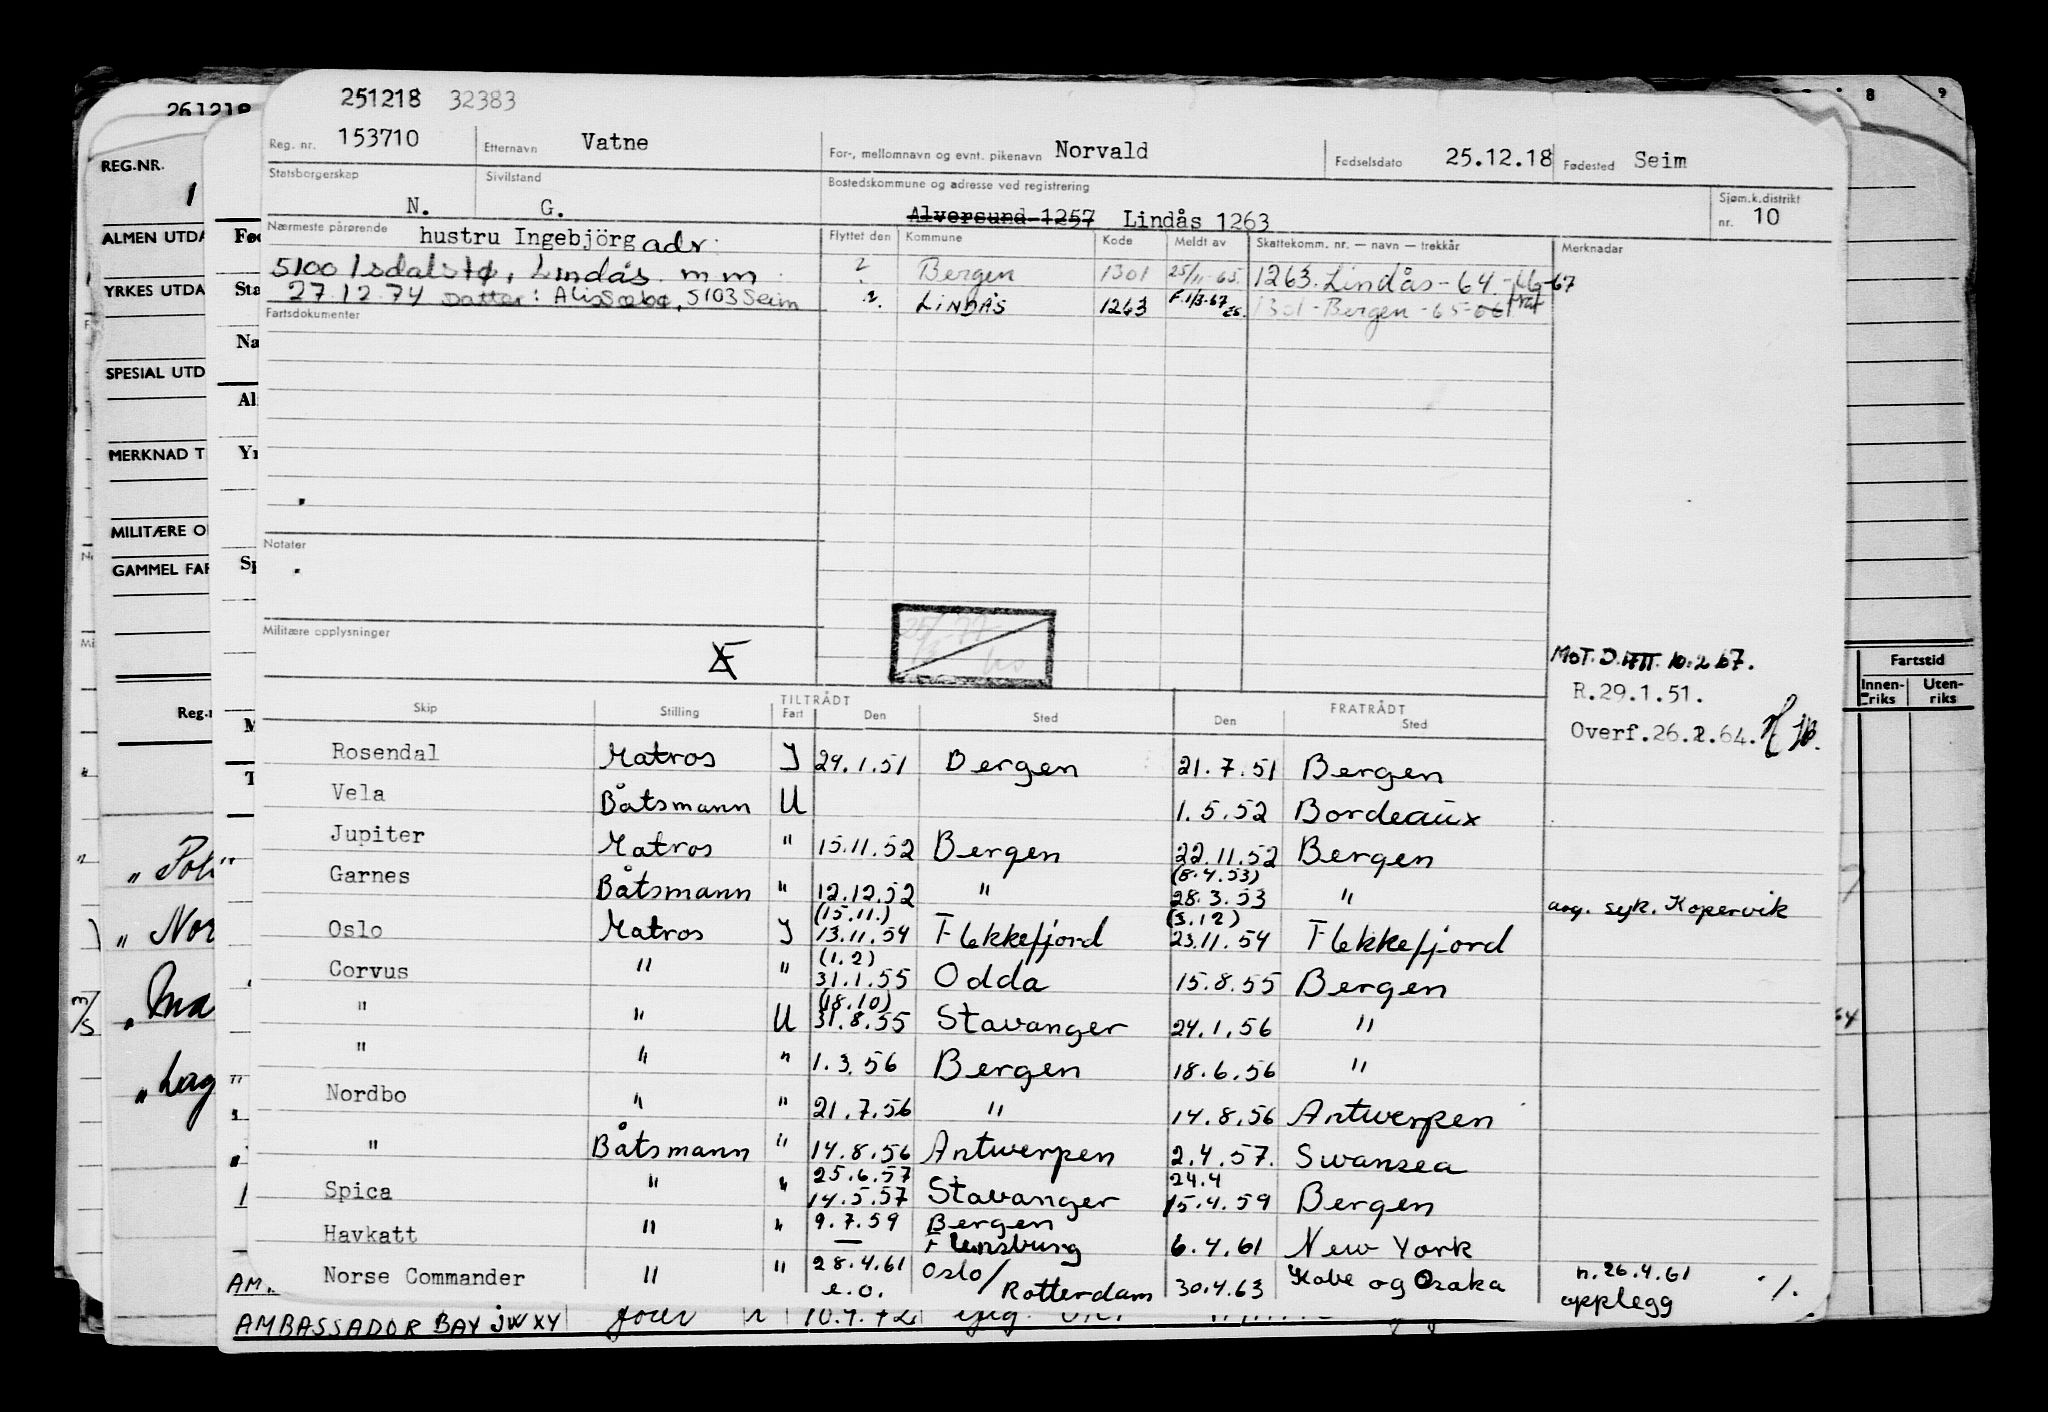 251218 32383
Reg. nr. 153710 Etternavn Vatne For-, mellomnavn og evnt. pikenavn Norvald Fødselsdato 25.12.18 Fødested Seim
Statsborgerskap N. Sivilstand G. Bostedskommune og adresse ved registrering Alversund 1257 Lindås 1263 Sjøm.k.distrikt nr. 10
Nærmeste pårørende hustru Ingebjörg adr.
5100 Isdalstø, Lindås. m m
27.12.74 Datter: Alis Sæbø, 5103 Seim
Flyttet den Kommune Kode Meldt av Skattekomm. nr. — navn — trekkår Merknader
? Bergen 1301 25/11-65. 1263. Lindås - 64. -66-67
?. LINDÅS 1263 F.1/3-67 1301 - Bergen - 65-66
Fartsdokumenter
Notater
Militære opplysninger
10.2.67.
R.29.1.51.
Overf.26.2.64.
Skip Stilling TILTRÅDT Fart Den Sted FRATRÅDT Den Sted
Rosendal Matros J 29.1.51 Bergen 21.7.51 Bergen
Vela Båtsmann U 1.5.52 Bordeaux
Jupiter Matros " 15.11.52 Bergen 22.11.52 Bergen
(8.4.53)
Garnes Båtsmann " 12.12.52 " 28.3.53 " avg. syk. Kopervik
(15.11.) (3.12)
Oslo Matros J 13.11.54 Flekkefjord 23.11.54 Flekkefjord
(1.2)
Corvus " " 31.1.55 Odda 15.8.55 Bergen
(18.10)
" " U 31.8.55 Stavanger 24.1.56 "
" " " 1.3.56 Bergen 18.6.56 "
Nordbo " " 21.7.56 " 14.8.56 Antwerpen
" Båtsmann " 14.8.56 Antwerpen 2.4.57. Swansea
25.6.57 24.4
Spica " " 14.5.57 Stavanger 15.4.59 Bergen
9.7.59 Bergen
Havkatt " " — Flensburg 6.4.61 New York
Norse Commander " " 28.4.61 Oslo/ Rotterdam 30.4.63 Kobe og Osaka n.26.4.61
e.o. opplegg ./.
AMBASSADOR BAY JWXY 10.4.72
261218
REG.NR.
ALMEN UTDA
YRKES UTDA
SPESIAL UTD
MERKNAD T
MILITÆRE O
GAMMEL FAR
Fartstid
Innen-riks Uten-riks